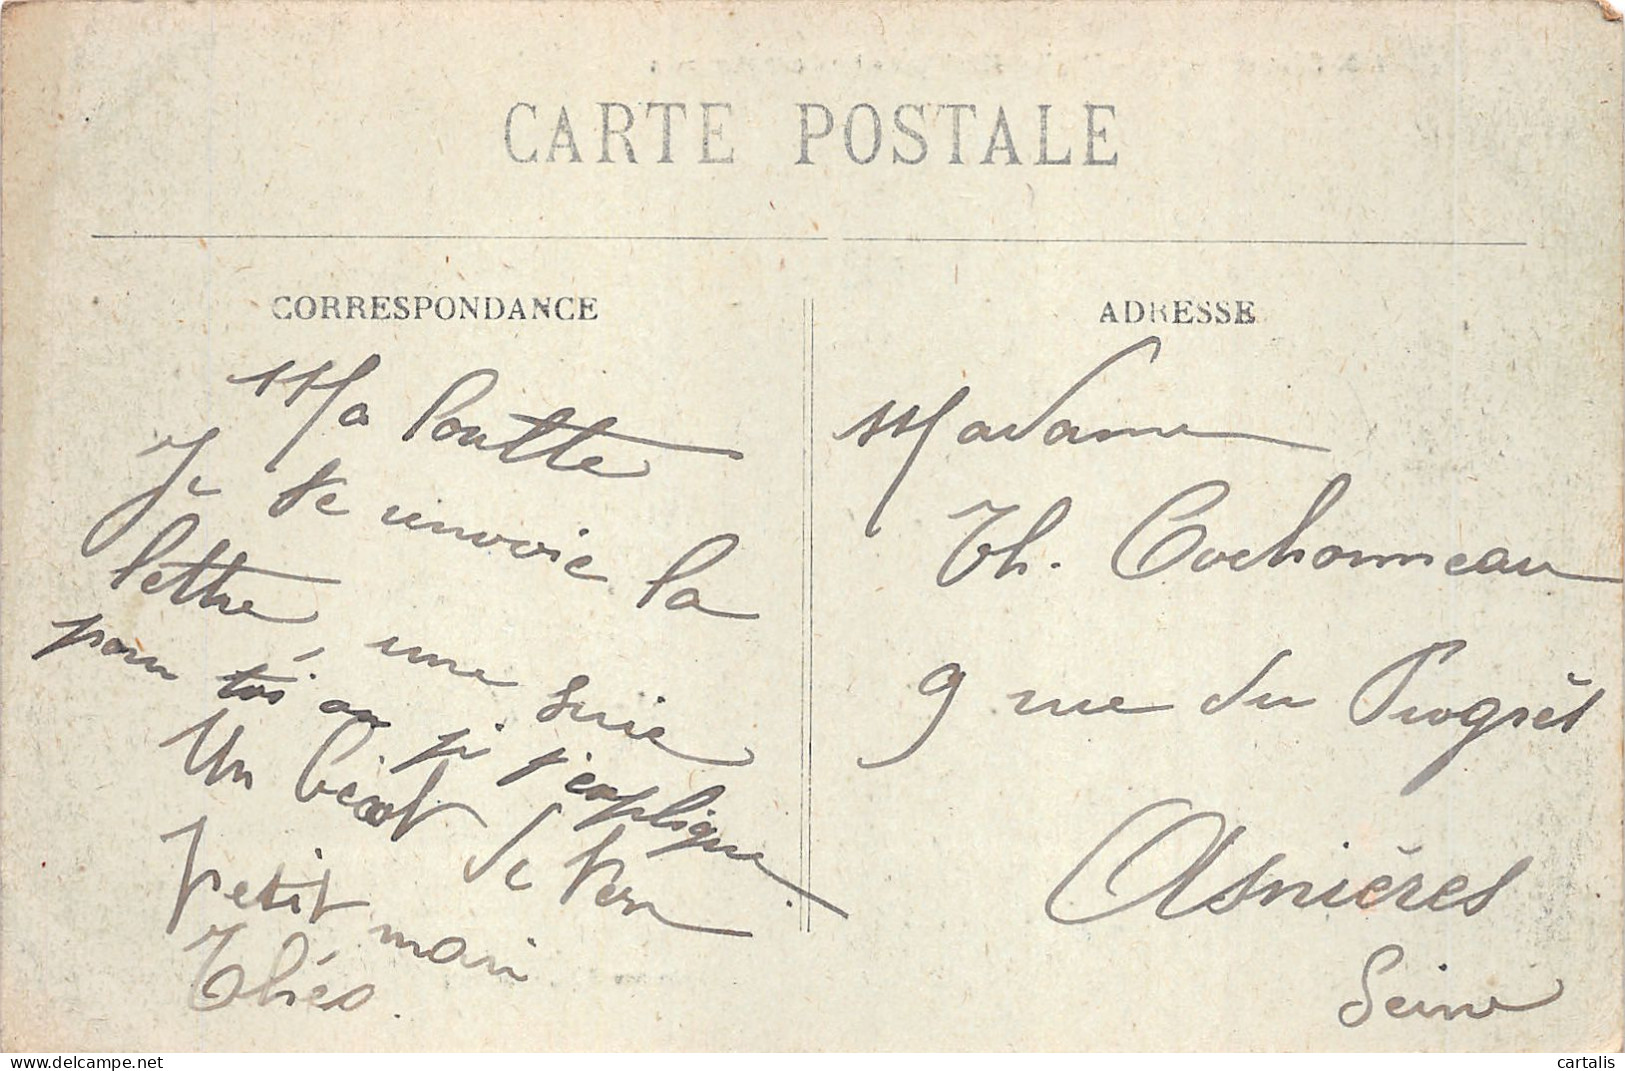 CARTE POSTALE
CORRESPONDANCE
Ma Poutte
Je te envoie la
lettre, une suie
pour toi ou je j'explique.
Un bécot de ton
petit mari
Théo.
ADRESSE
Madame
Th. Cochonneau
9 rue du Progrès
Asnières
Seine
cartalis